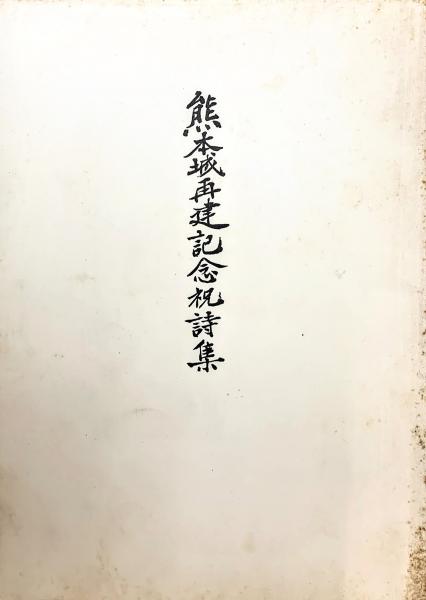 熊本城再建記念祝詩集